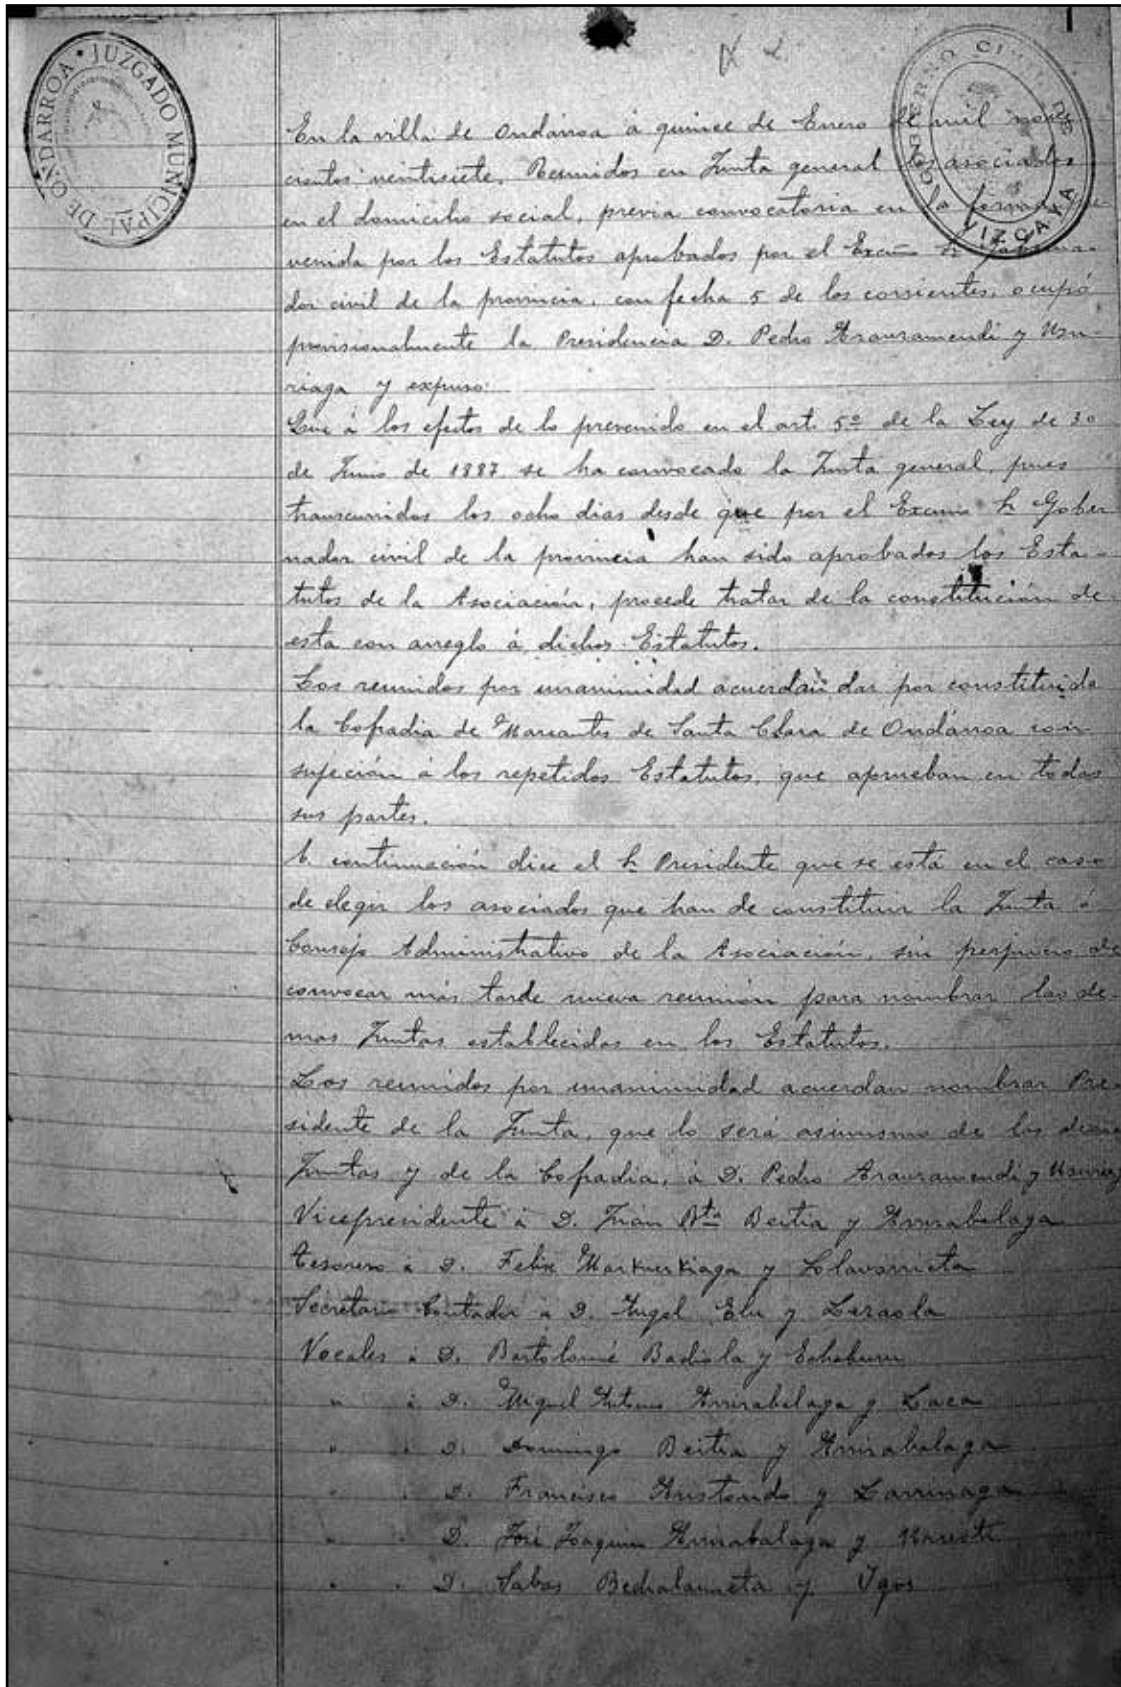 JUZGADO MUNICIPAL DE ONDARROA
GOBIERNO CIVIL DE VIZCAYA
En la villa de Ondárroa á quince de Enero de mil nove-
cientos veintisiete. Reunidos en Junta general los asociados
en el domicilio social, previa convocatoria en la forma pre-
venida por los Estatutos aprobados por el Excmo Sr Goberna-
dor civil de la provincia, con fecha 5 de los corrientes, ocupó
provisionalmente la Presidencia D. Pedro Aranramendi y Usu-
riaga y expuso:
Que á los efectos de lo prevenido en el art. 5º de la Ley de 30
de Junio de 1887 se ha convocado la Junta general, pues
transcurridos los ocho dias desde que por el Excmo Sr Gober
nador civil de la provincia han sido aprobados los Esta-
tutos de la Asociación, procede tratar de la constitución de
esta con arreglo á dichos Estatutos.
Los reunidos por unanimidad acuerdan dar por constituida
la Cofradia de Mareantes de Santa Clara de Ondárroa con
sujeción á los repetidos Estatutos, que aprueban en todas
sus partes.
A continuación dice el Sr Presidente que se está en el caso
de elegir los asociados que han de constituir la Junta ó
Consejo Administrativo de la Asociación, sin perjuicio de
convocar más tarde nueva reunión para nombrar las de-
mas Juntas establecidas en los Estatutos.
Los reunidos por unanimidad acuerdan nombrar Pre-
sidente de la Junta, que lo será asimismo de las demas
Juntas y de la Cofradia, á D. Pedro Aranramendi y Usuriaga
Vicepresidente á D. Juan Bta Beitia y Arrizabalaga
Tesorero á D. Felix Markuerkiaga y Solavarrieta
Secretario Contador á D. Angel Elu y Lersola
Vocales á D. Bartolomé Badiola y Echaburu
" á D. Miguel Antonio Arrizabalaga y
" " D. Domingo Beitia y Arrizabalaga
" " D. Francisco Aristondo y Larrinaga
" " D. José Joaquin Arrizabalaga y
" " D. Sabas Bedialauneta y